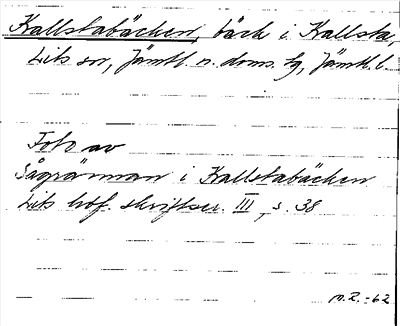 Kallstabäcken, bäck i Kallsta,
Lits sn, Jämtl. n. doms. tg, Jämtl. l.
Foto av
Sågrännan i Kallstabäcken
Lits hbf. skriftser. III, s. 38
M.R. -62